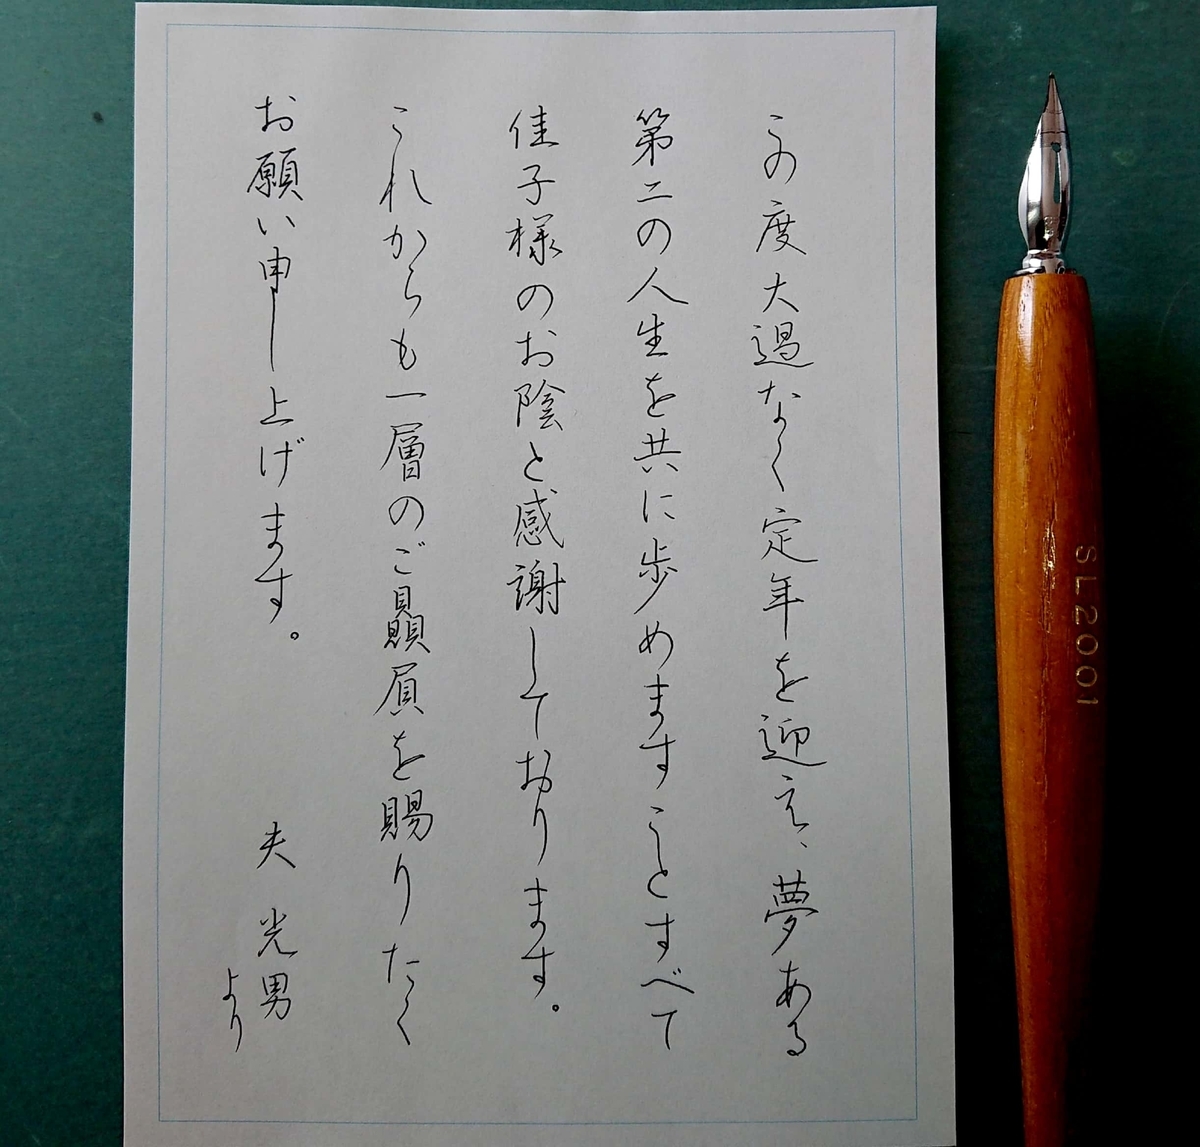 この度大過なく定年を迎え、夢ある
第二の人生を共に歩めますことすべて
佳子様のお陰と感謝しております。
これからも一層のご贔屓を賜りたく
お願い申し上げます。
夫 光男
より
SL2001